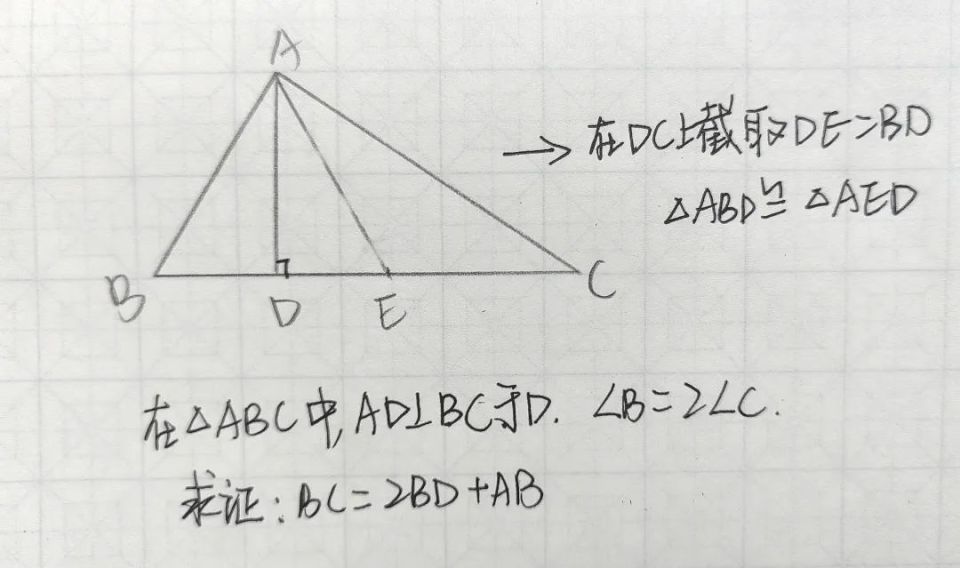 A
→ 在DC上截取DE=BD
△ABD≌△AED
B D E C
在△ABC中,AD⊥BC于D. ∠B=2∠C.
求证:BC=2BD+AB